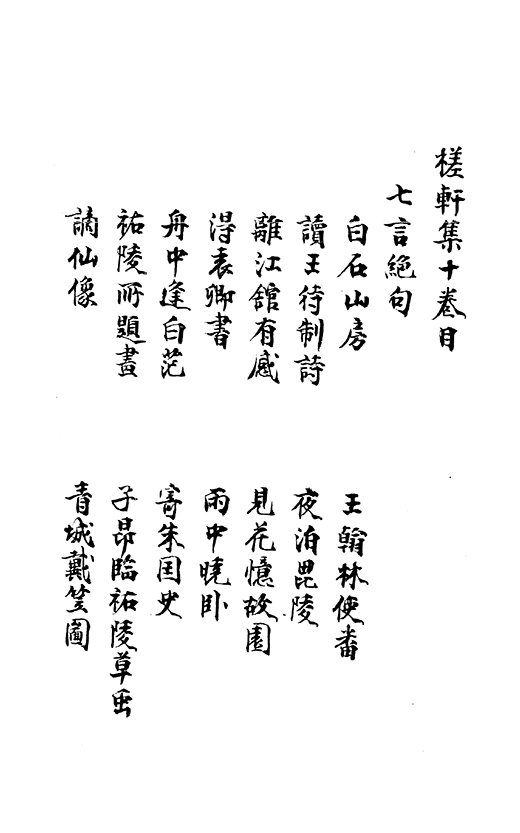 槎軒集十卷目
七言絕句
白石山房
王翰林使番
讀王待制詩
夜泊毘陵
離江館有感
見花憶故園
淂表卿書
雨中曉卧
舟中逢白范
寄朱囯史
祐陵所題畫
子昂臨祐陵草虫
謫仙像
青城戴笠圖